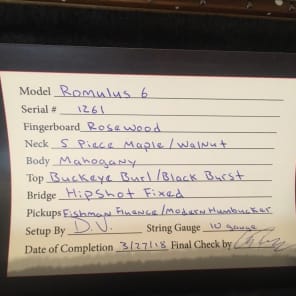 Model Romulus 6
Serial # 1261
Fingerboard Rosewood
Neck 5 Piece Maple/Walnut
Body Mahogany
Top Buckeye Burl/Black Burst
Bridge Hipshot Fixed
Pickups Fishman Fluence/Modern Humbucker
Setup By D.V. String Gauge 10 gauge
Date of Completion 3/27/18 Final Check by